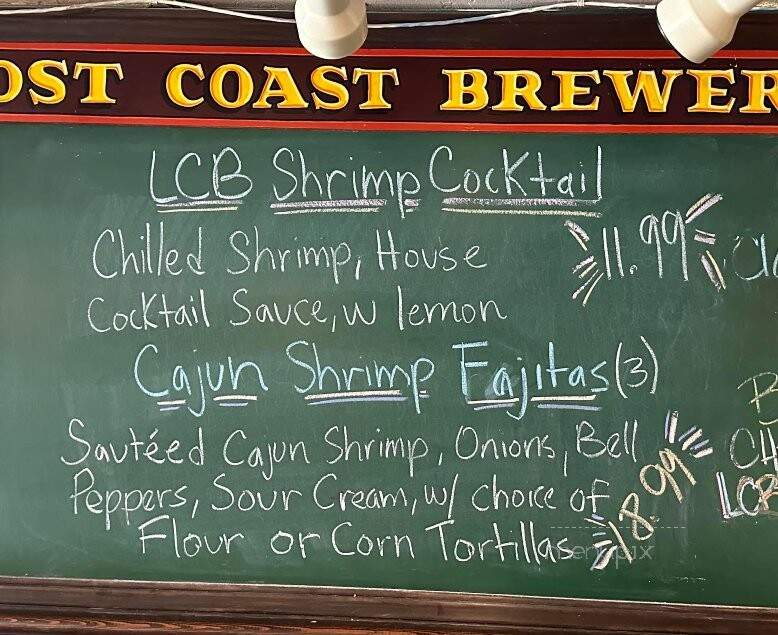 OST COAST BREWER
LCB Shrimp Cocktail
Chilled Shrimp, House
Cocktail Sauce, w lemon
11.99
Cajun Shrimp Fajitas (3)
Sautéed Cajun Shrimp, Onions, Bell
Peppers, Sour Cream, w/ choice of
Flour or Corn Tortillas
18.99
CH
LCB
menupix